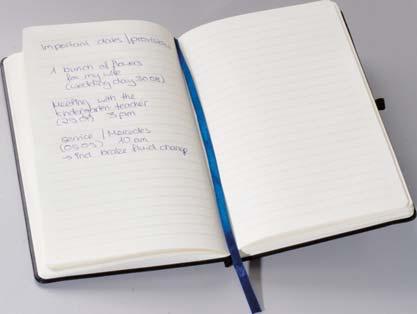 Important dates / priorities
1 bunch of flowers
for my wife
(wedding day 30.08)
Meeting with the
kindergarten teacher
(29.09) 3 pm
Service / Mercedes
(05.09) 10 am
→ incl. brake fluid change